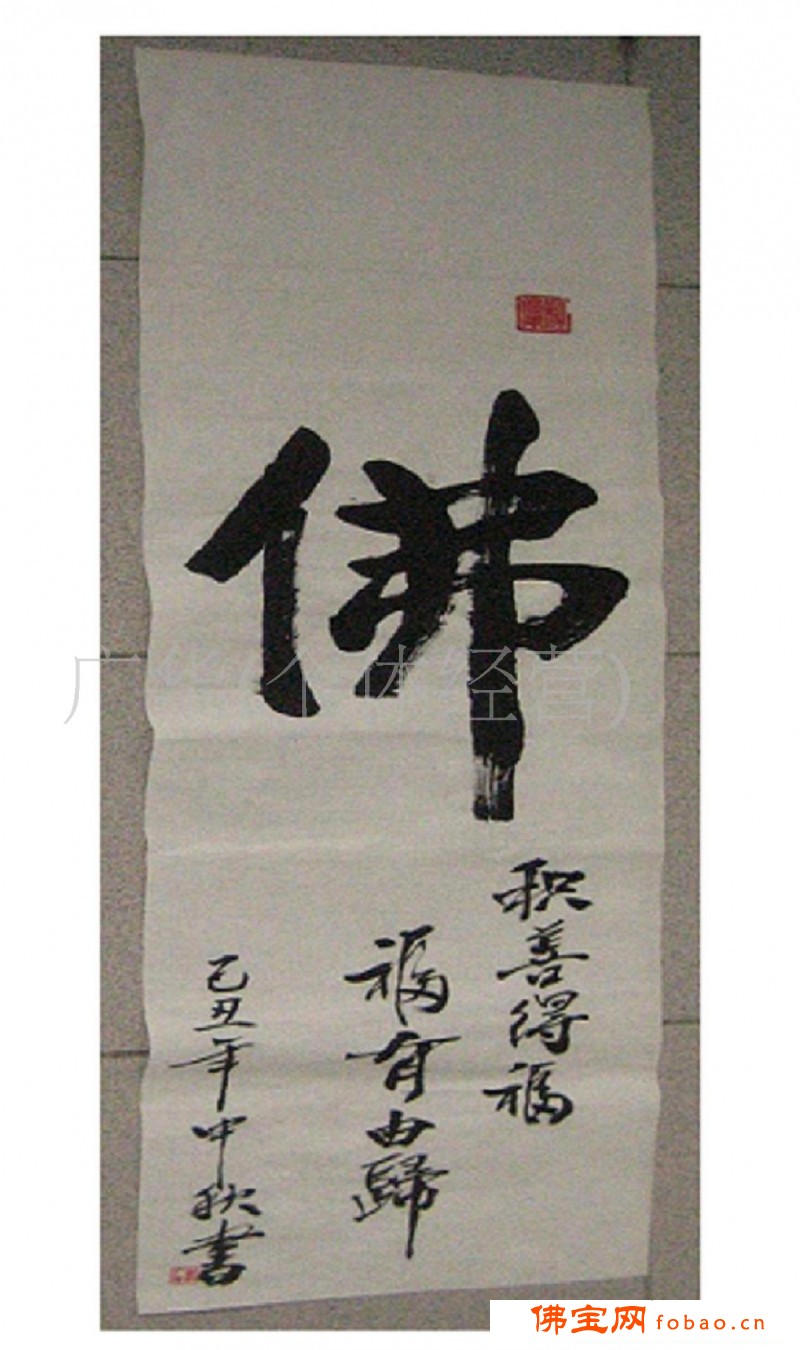 佛
积善得福
福有由歸
己丑年中秋書
广华(个体经营)
佛宝网fobao.cn